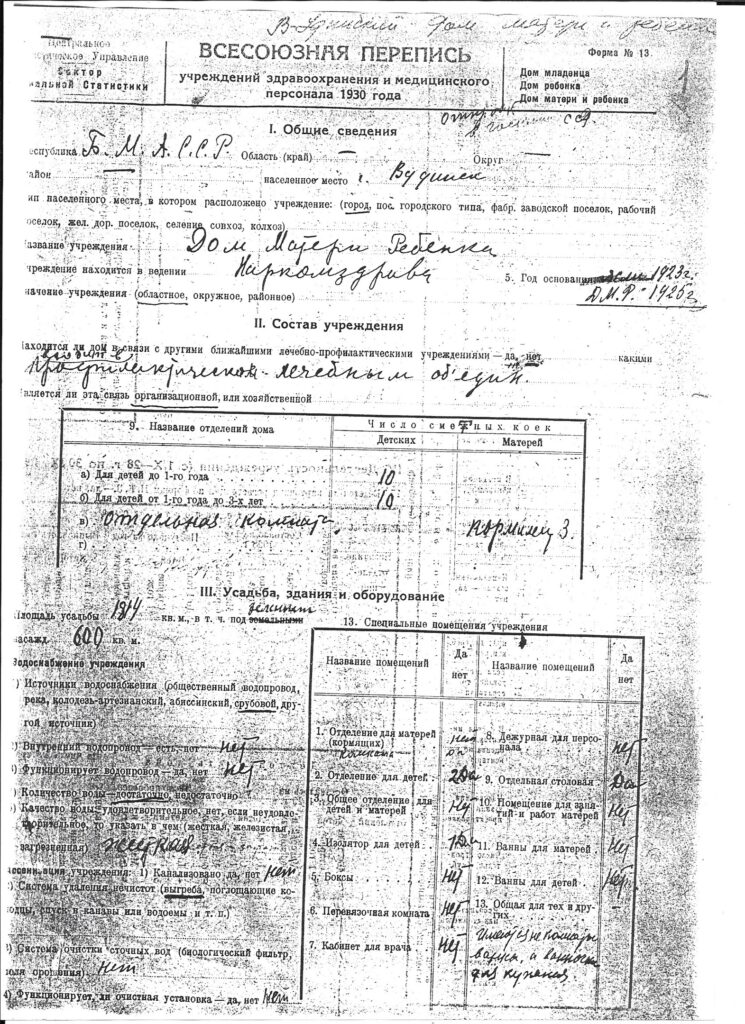 В-Удинский Дом матери и ребенка
Центральное
Управление
Сектор
Статистики
ВСЕСОЮЗНАЯ ПЕРЕПИСЬ
учреждений здравоохранения и медицинского
персонала 1930 года
Форма № 13.
Дом младенца
Дом ребенка
Дом матери и ребенка
1
I. Общие сведения
Республика Б. М. А. С. С. Р. Область (край) — Округ —
район населенное место г. В удинск
тип населенного места, в котором расположено учреждение: (город, пос. городского типа, фабр. заводской поселок, рабочий
поселок, жел. дор. поселок, селение совхоз, колхоз)
Название учреждения Дом Матери Ребенка
Учреждение находится в ведении Наркомздрава 5. Год основания 1923г.
Д.М.Р. 1925г.
значение учреждения (областное, окружное, районное)
II. Состав учреждения
Находится ли дом в связи с другими ближайшими лечебно-профилактическими учреждениями — да, нет, какими
лечебным об'един.
Является ли эта связь организационной, или хозяйственной
9. Название отделений дома
Число сметных коек
Детских Матерей
а) Для детей до 1-го года 10
б) Для детей от 1-го года до 3-х лет 10
в) отдельная комната кормилец 3.
г)
III. Усадьба, здания и оборудование
Площадь усадьбы 1814 кв. м., в т. ч. под земельными
насажд. 600 кв. м.
Водоснабжение учреждения
) Источники водоснабжения (общественный водопровод,
река, колодезь-артезианский, абиссинский, срубовой, дру
гой источник)
) Внутренний водопровод — есть, нет нет
) Функционирует водопровод — да, нет нет
) Количество воды — достаточно, недостаточно
) Качество воды удовлетворительное, нет, если неудовле-
творительное, то указать в чем (жесткая, железистая,
загрязненная) жесткая
учреждения: 1) Канализовано да, нет нет
) Система удаления нечистот (выгреба, поглощающие ко-
лодцы, спуск в канавы или водоемы и т. п.)
) Система очистки сточных вод (биологический фильтр,
поля орошения) нет
4) Функционирует ли очистная установка — да, нет нет
13. Специальные помещения учреждения
Название помещений Да нет Название помещений Да нет
1. Отделение для матерей (кормящих) комната нет
2. Отделение для детей 2 Да
3. Общее отделение для детей и матерей нет
4. Изолятор для детей 1 Да
5. Боксы нет
6. Перевязочная комната нет
7. Кабинет для врача нет
8. Дежурная для персонала нет
9. Отдельная столовая Да
10. Помещение для занятий и работ матерей нет
11. Ванны для матерей нет
12. Ванны для детей нет
13. Общая для тех и других —
для купания